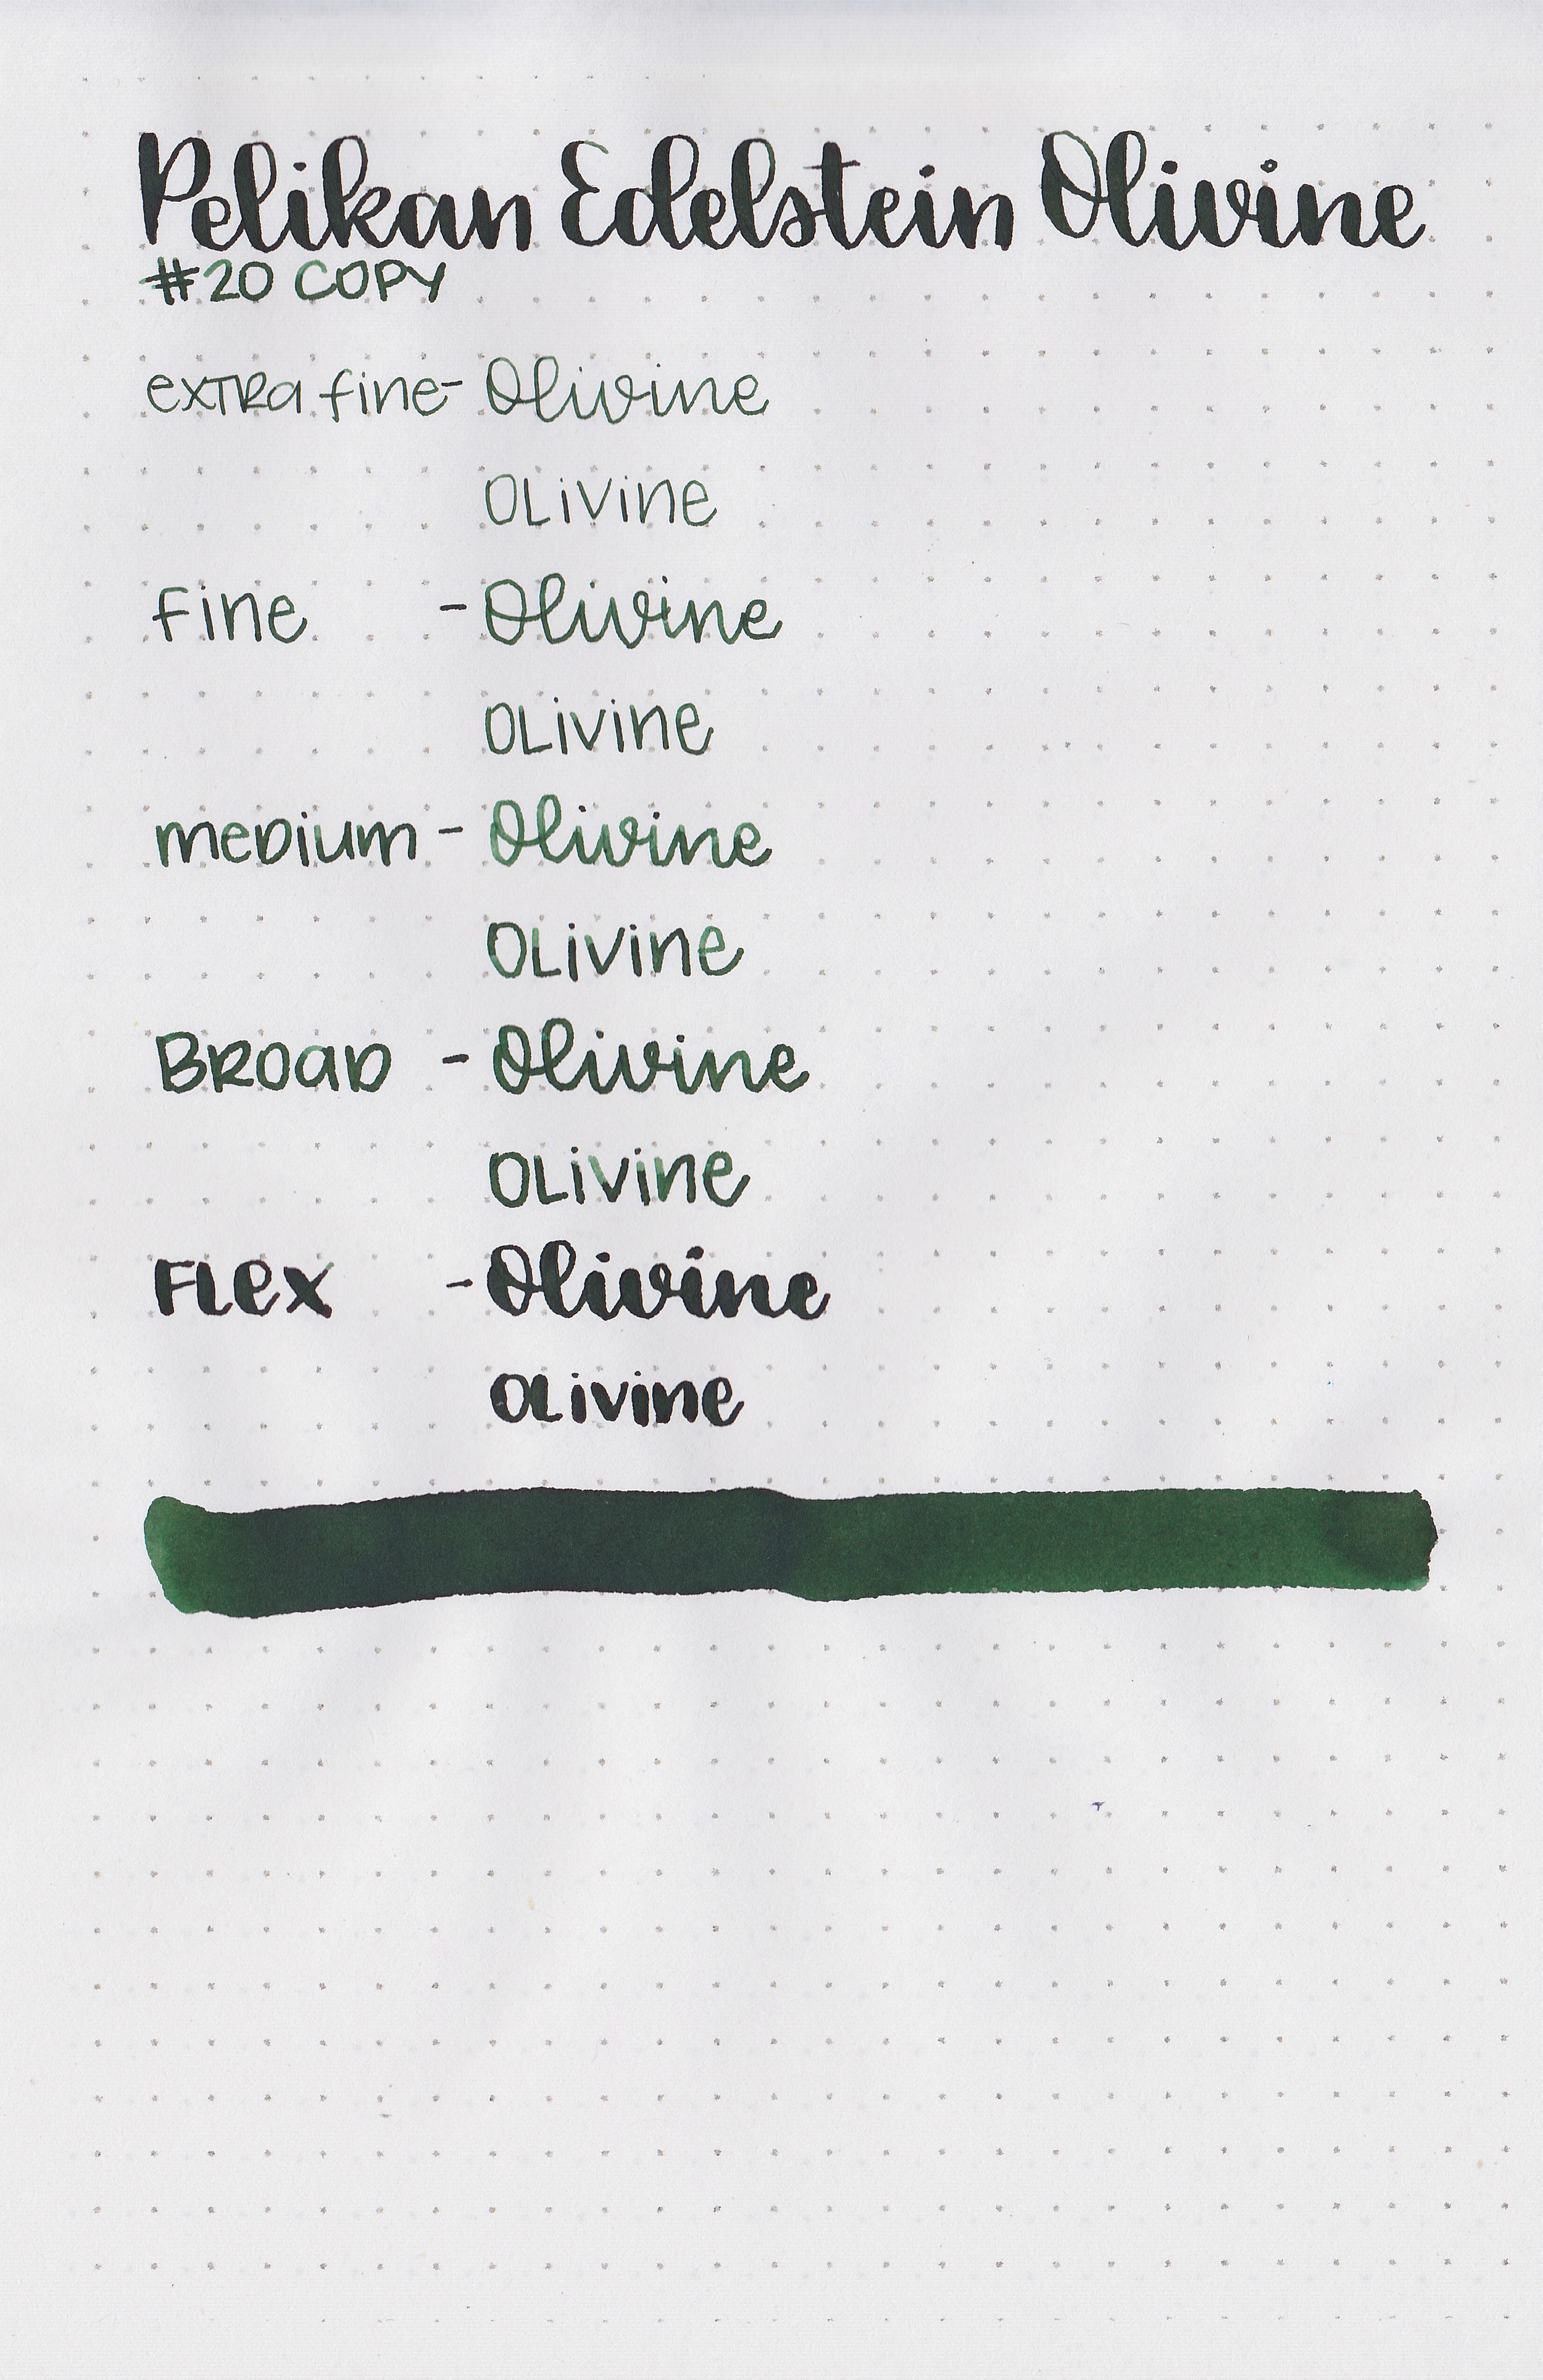 Pelikan Edelstein Olivine
#20 COPY
extra fine - Olivine
Olivine
fine - Olivine
Olivine
medium - Olivine
Olivine
Broad - Olivine
Olivine
Flex - Olivine
Olivine